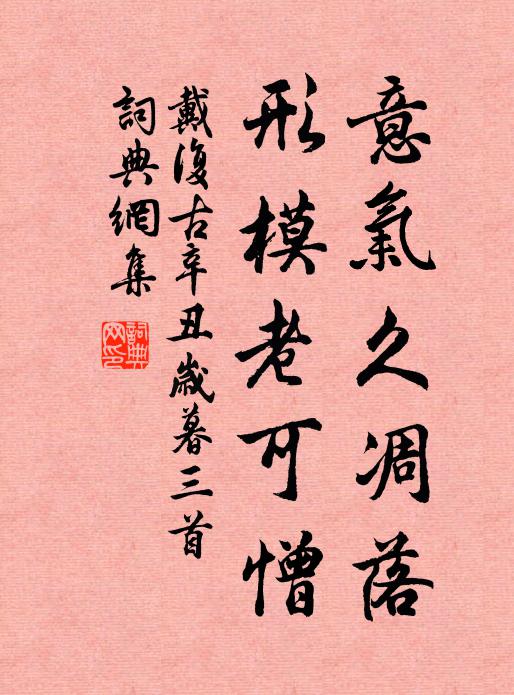 意氣久凋落
形模老可憎
戴復古辛丑歲暮三首
詞典網集
詞典網印